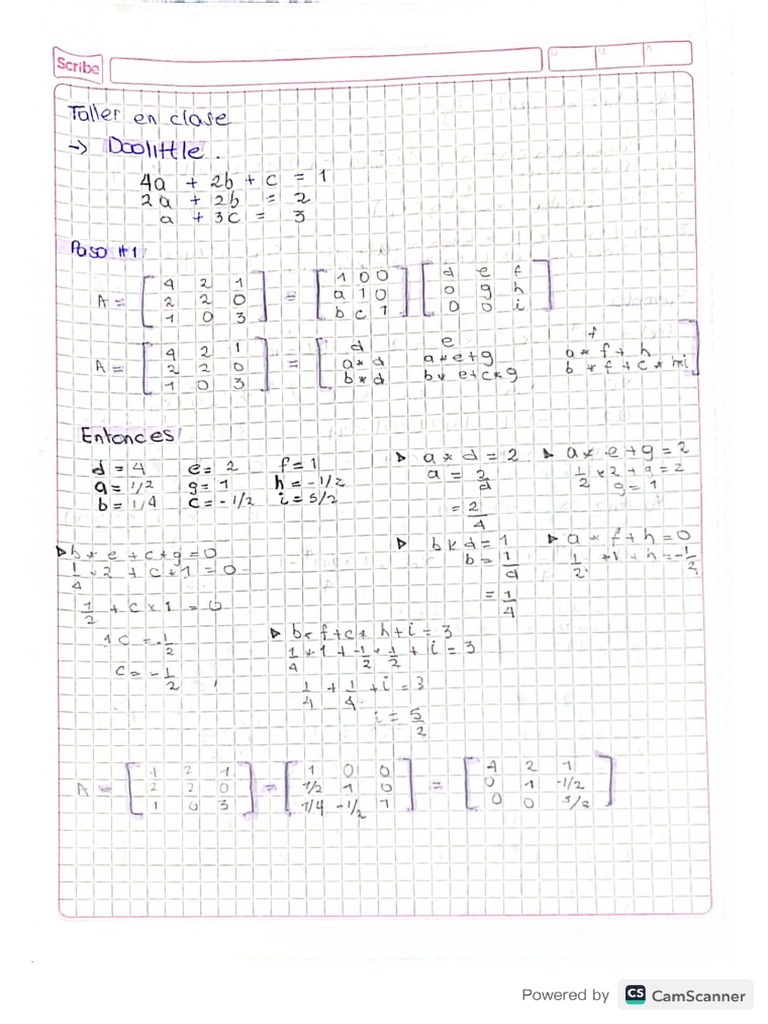 Scribe
Taller en clase
→ Doolittle.
4a + 2b + c = 1
2a + 2b = 2
a + 3c = 3
Paso #1
A = [4 2 1; 2 2 0; 1 0 3] = [1 0 0; a 1 0; b c 1] [d e f; 0 g h; 0 0 i]
A = [4 2 1; 2 2 0; 1 0 3] = [d e f; a*d a*e+g a*f+h; b*d b*e+c*g b*f+c*h+i]
Entonces
d = 4 e = 2 f = 1
a = 1/2 g = 1 h = -1/2
b = 1/4 c = -1/2 i = 5/2
▷ a * d = 2
a = 2/d
= 2/4
▷ a * e + g = 2
1/2 * 2 + g = 2
g = 1
▷ b * e + c * g = 0
1/4 * 2 + c * 1 = 0
1/2 + c * 1 = 0
1c = -1/2
c = -1/2
▷ b * d = 1
b = 1/d
= 1/4
▷ a * f + h = 0
1/2 * 1 + h = -1/2
▷ b * f + c * h + i = 3
1/4 * 1 + -1/2 * -1/2 + i = 3
1/4 + 1/4 + i = 3
i = 5/2
A = [4 2 1; 2 2 0; 1 0 3] = [1 0 0; 1/2 1 0; 1/4 -1/2 1] = [4 2 1; 0 1 -1/2; 0 0 5/2]
Powered by CS CamScanner